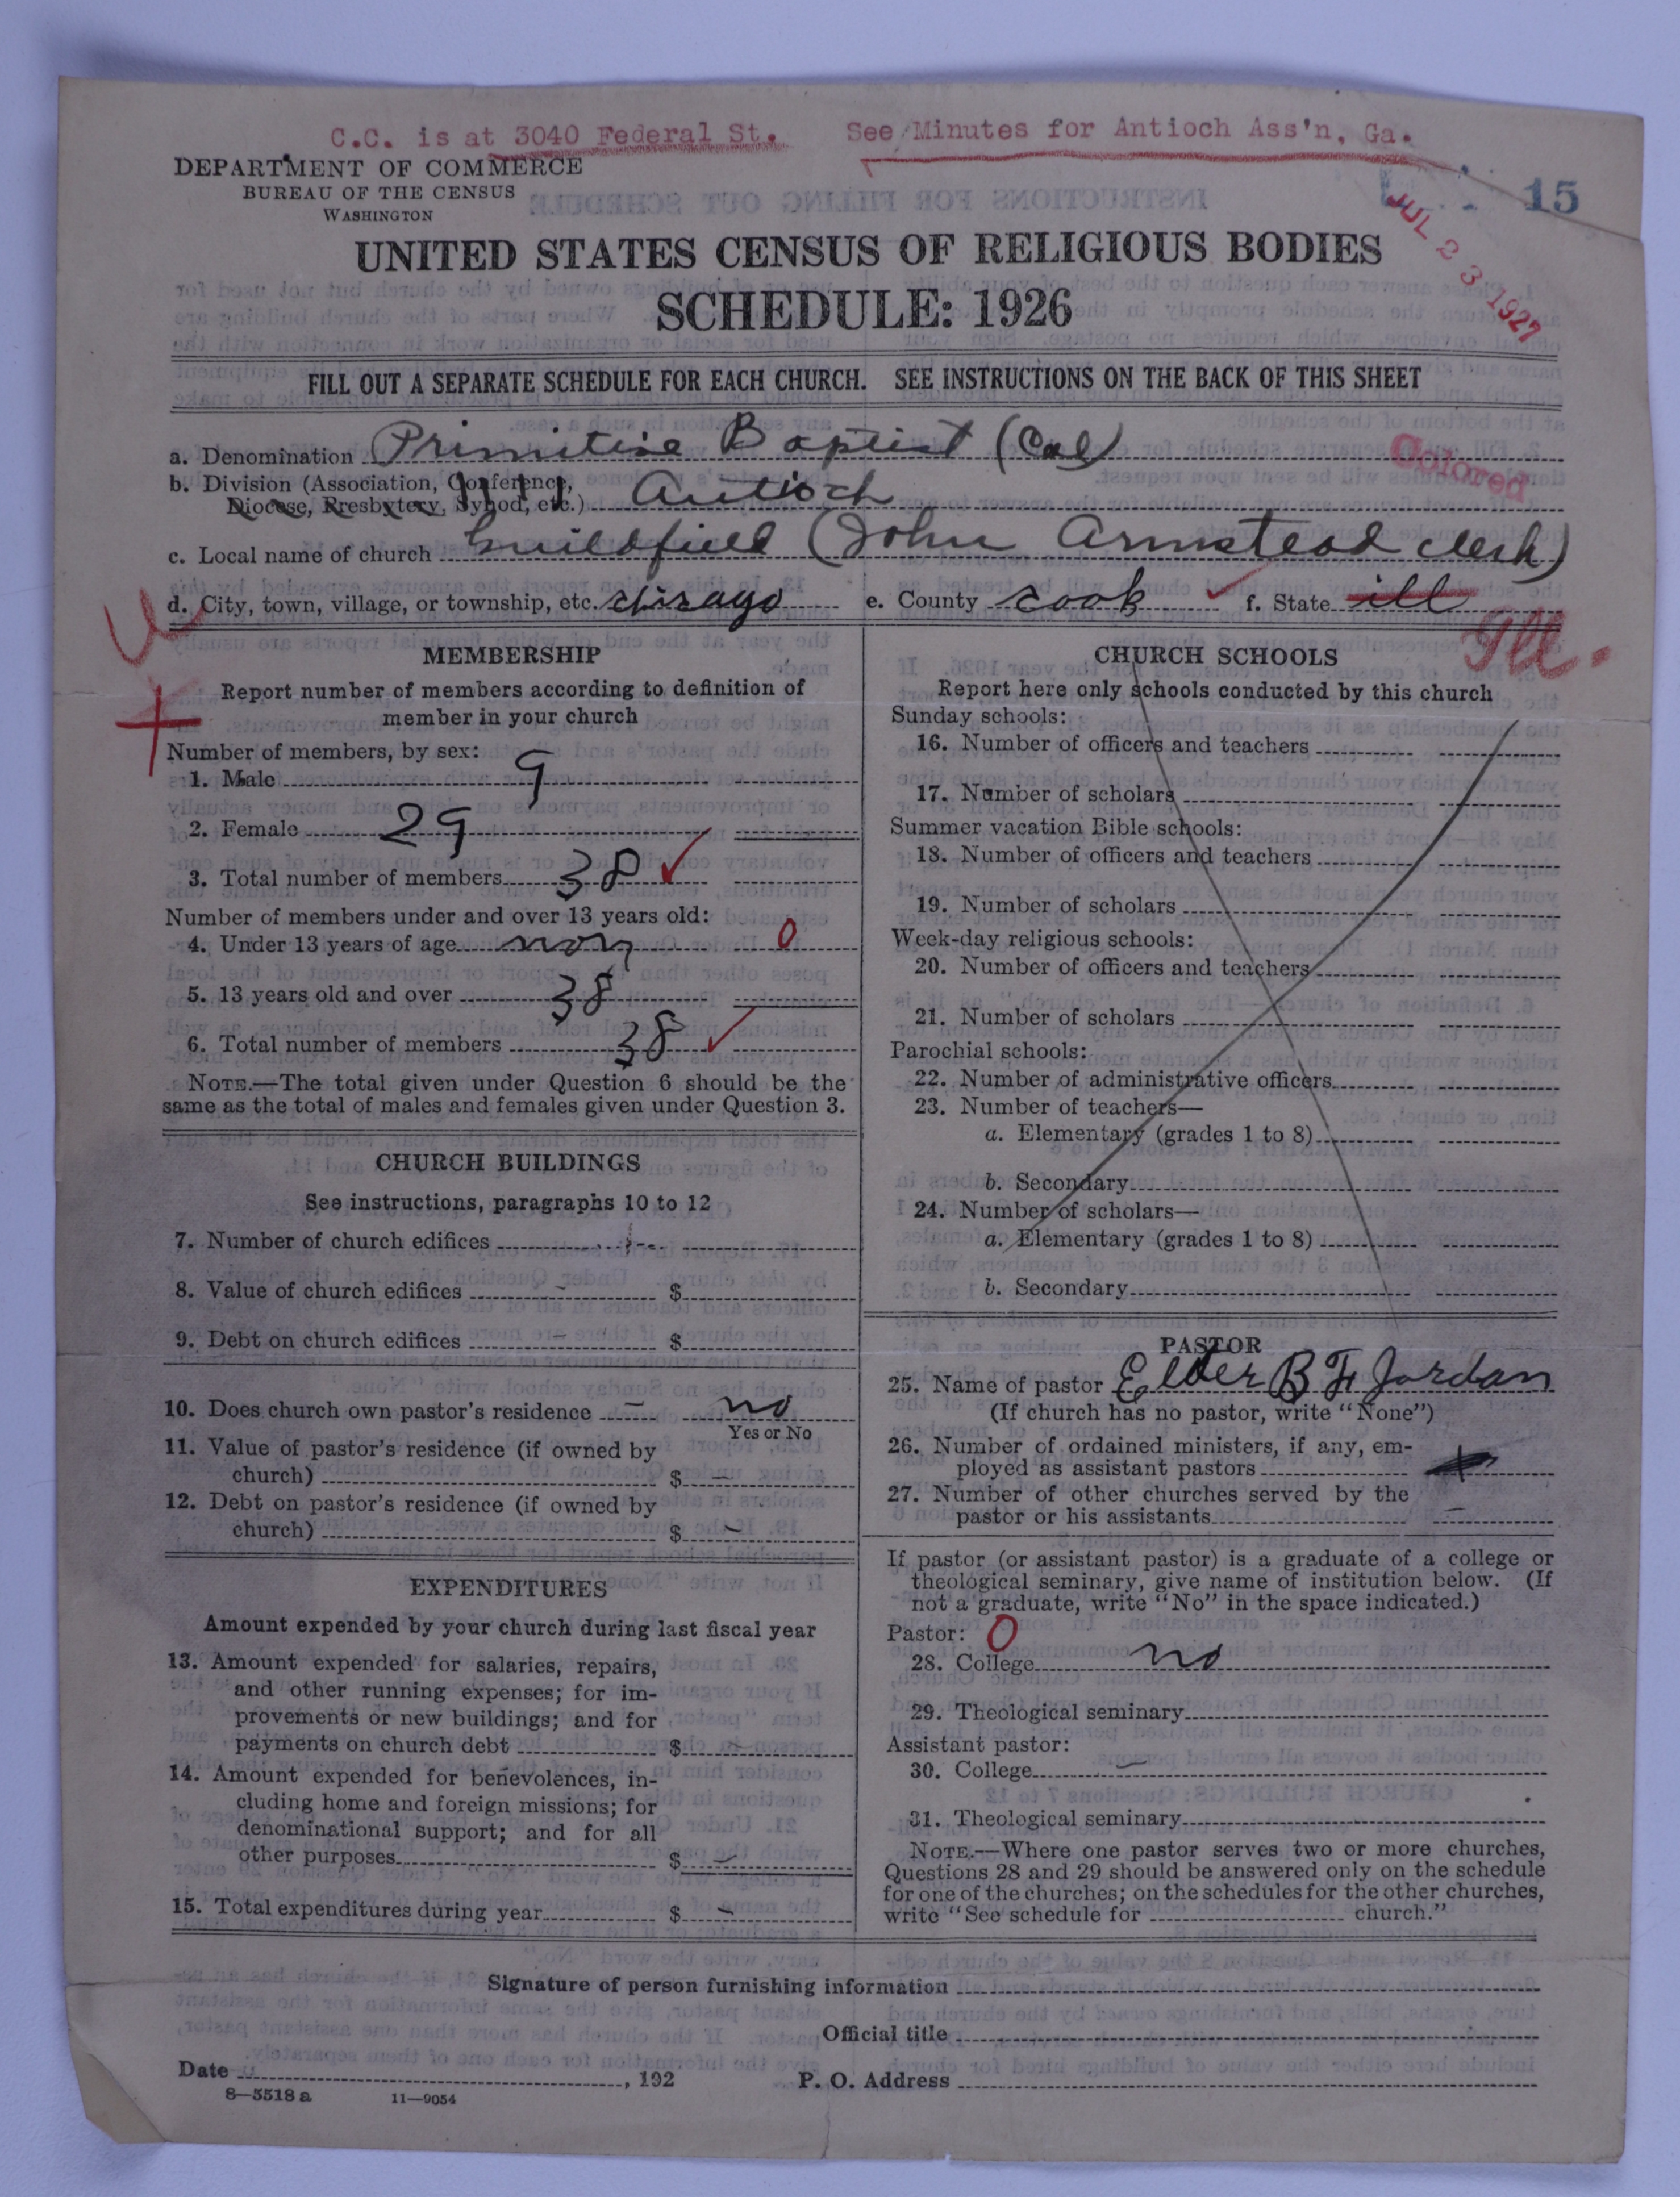 C.C. is at 3040 Federal St. See Minutes for Antioch Ass'n, Ga.
DEPARTMENT OF COMMERCE
BUREAU OF THE CENSUS
WASHINGTON
15
JUL 23 1927
UNITED STATES CENSUS OF RELIGIOUS BODIES
SCHEDULE: 1926
FILL OUT A SEPARATE SCHEDULE FOR EACH CHURCH. SEE INSTRUCTIONS ON THE BACK OF THIS SHEET
a. Denomination Primitive Baptist (Col)
Colored
b. Division (Association, Conference,
Diocese, Presbytery, Synod, etc.) Antioch
c. Local name of church Guildfield (John Armstead Clerk)
d. City, town, village, or township, etc. Chicago e. County Cook f. State ill
Ill.
MEMBERSHIP
Report number of members according to definition of
member in your church
Number of members, by sex:
1. Male 9
2. Female 29
3. Total number of members 38
Number of members under and over 13 years old:
4. Under 13 years of age non 0
5. 13 years old and over 38
6. Total number of members 38
NOTE.—The total given under Question 6 should be the
same as the total of males and females given under Question 3.
CHURCH BUILDINGS
See instructions, paragraphs 10 to 12
7. Number of church edifices
8. Value of church edifices - $
9. Debt on church edifices - $
10. Does church own pastor's residence - no
Yes or No
11. Value of pastor's residence (if owned by
church) $ -
12. Debt on pastor's residence (if owned by
church) $ -
EXPENDITURES
Amount expended by your church during last fiscal year
13. Amount expended for salaries, repairs,
and other running expenses; for im-
provements or new buildings; and for
payments on church debt $ -
14. Amount expended for benevolences, in-
cluding home and foreign missions; for
denominational support; and for all
other purposes $ -
15. Total expenditures during year $ -
CHURCH SCHOOLS
Report here only schools conducted by this church
Sunday schools:
16. Number of officers and teachers
17. Number of scholars
Summer vacation Bible schools:
18. Number of officers and teachers
19. Number of scholars
Week-day religious schools:
20. Number of officers and teachers
21. Number of scholars
Parochial schools:
22. Number of administrative officers
23. Number of teachers—
a. Elementary (grades 1 to 8)
b. Secondary
24. Number of scholars—
a. Elementary (grades 1 to 8)
b. Secondary
PASTOR
25. Name of pastor Elder B F Jordan
(If church has no pastor, write "None")
26. Number of ordained ministers, if any, em-
ployed as assistant pastors
27. Number of other churches served by the
pastor or his assistants -
If pastor (or assistant pastor) is a graduate of a college or
theological seminary, give name of institution below. (If
not a graduate, write "No" in the space indicated.)
Pastor: 0
28. College no
29. Theological seminary
Assistant pastor:
30. College -
31. Theological seminary
NOTE.—Where one pastor serves two or more churches,
Questions 28 and 29 should be answered only on the schedule
for one of the churches; on the schedules for the other churches,
write "See schedule for church."
Signature of person furnishing information
Official title
Date , 192 P. O. Address
8—5518 a 11—9054